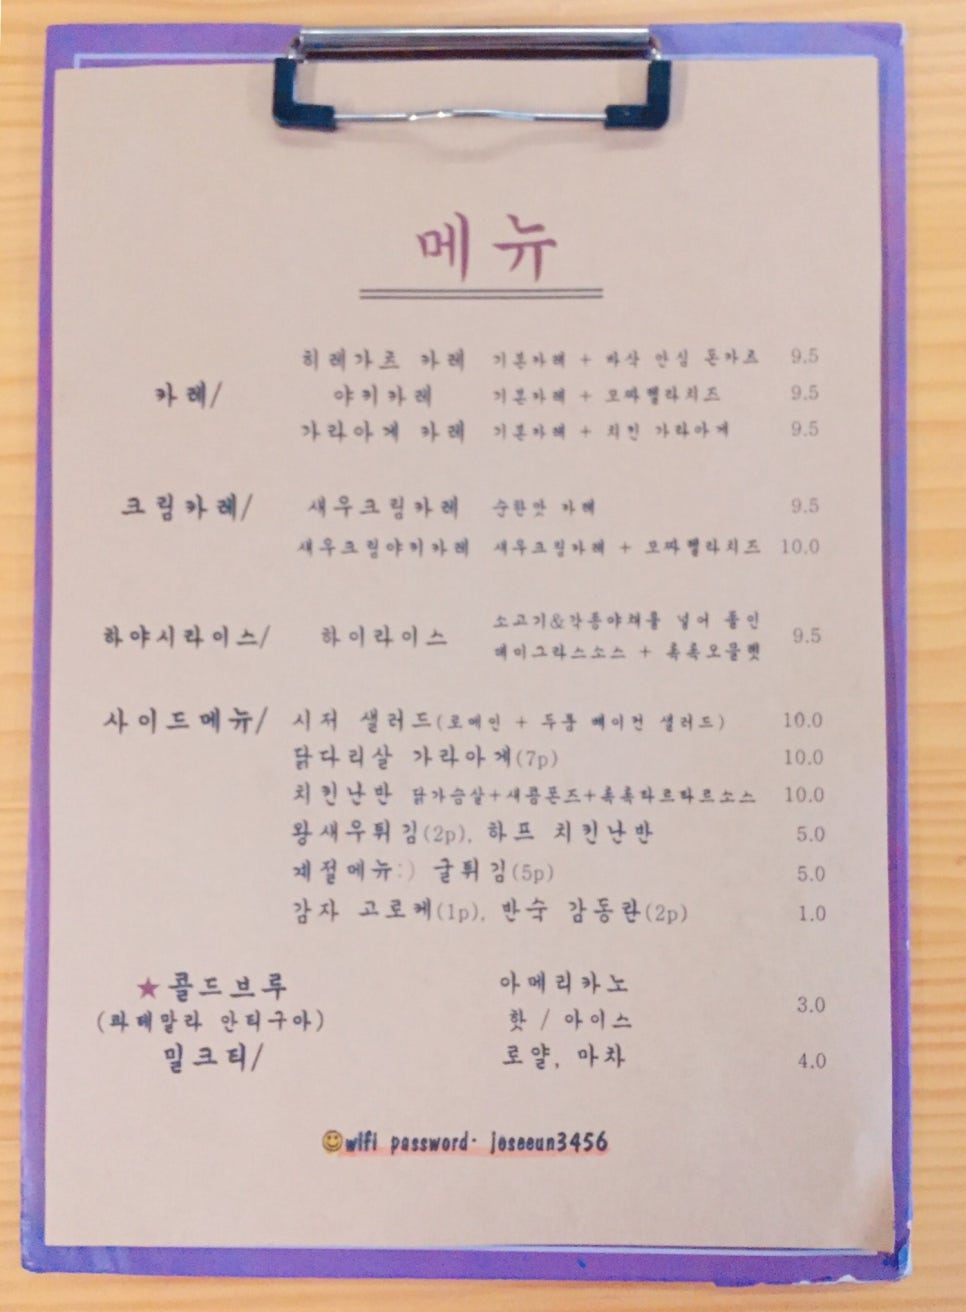 메뉴
카레/
히레가츠 카레 기본카레 + 바삭 안심 돈카츠 9.5
야키카레 기본카레 + 모짜렐라치즈 9.5
가라아게 카레 기본카레 + 치킨 가라아게 9.5
크림카레/ 새우크림카레 순한맛 카레 9.5
새우크림야키카레 새우크림카레 + 모짜렐라치즈 10.0
하야시라이스/ 하이라이스 소고기&각종야채를 넣어 졸인 9.5
데미그라스소스 + 톡톡오믈렛
사이드메뉴/ 시저 샐러드(로메인 + 두툼 베이컨 샐러드) 10.0
닭다리살 가라아게(7p) 10.0
치킨난반 닭가슴살+새콤폰즈+톡톡타르타르소스 10.0
왕새우튀김(2p), 하프 치킨난반 5.0
계절메뉴:) 굴튀김(5p) 5.0
감자 고로케(1p), 반숙 감동란(2p) 1.0
★콜드브루 아메리카노 3.0
(과테말라 안티구아) 핫 / 아이스
밀크티/ 로얄, 마차 4.0
wifi password· joseeun3456